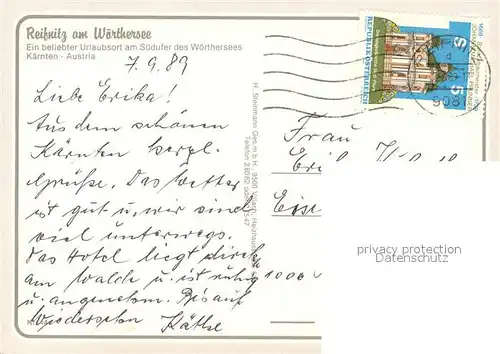 Reifnitz am Wörthersee
Ein beliebter Urlaubsort am Südufer des Wörthersees
Kärnten - Austria
7.9.89
Liebe Erika!
Aus dem schönen
Kärnten herzl.
Grüße. Das Wetter
ist gut u. wir sind
viel unterwegs.
Das Hotel liegt direkt
am Wald u. ist ruhig
u. angenehm. Bis auf
Wiedersehen Käthe
H. Steinmann Ges.m.b.H. 9500 Villach,
Telefon
REPUBLIK ÖSTERREICH
S 5
Frau
Eri
1000
privacy protection
Datenschutz